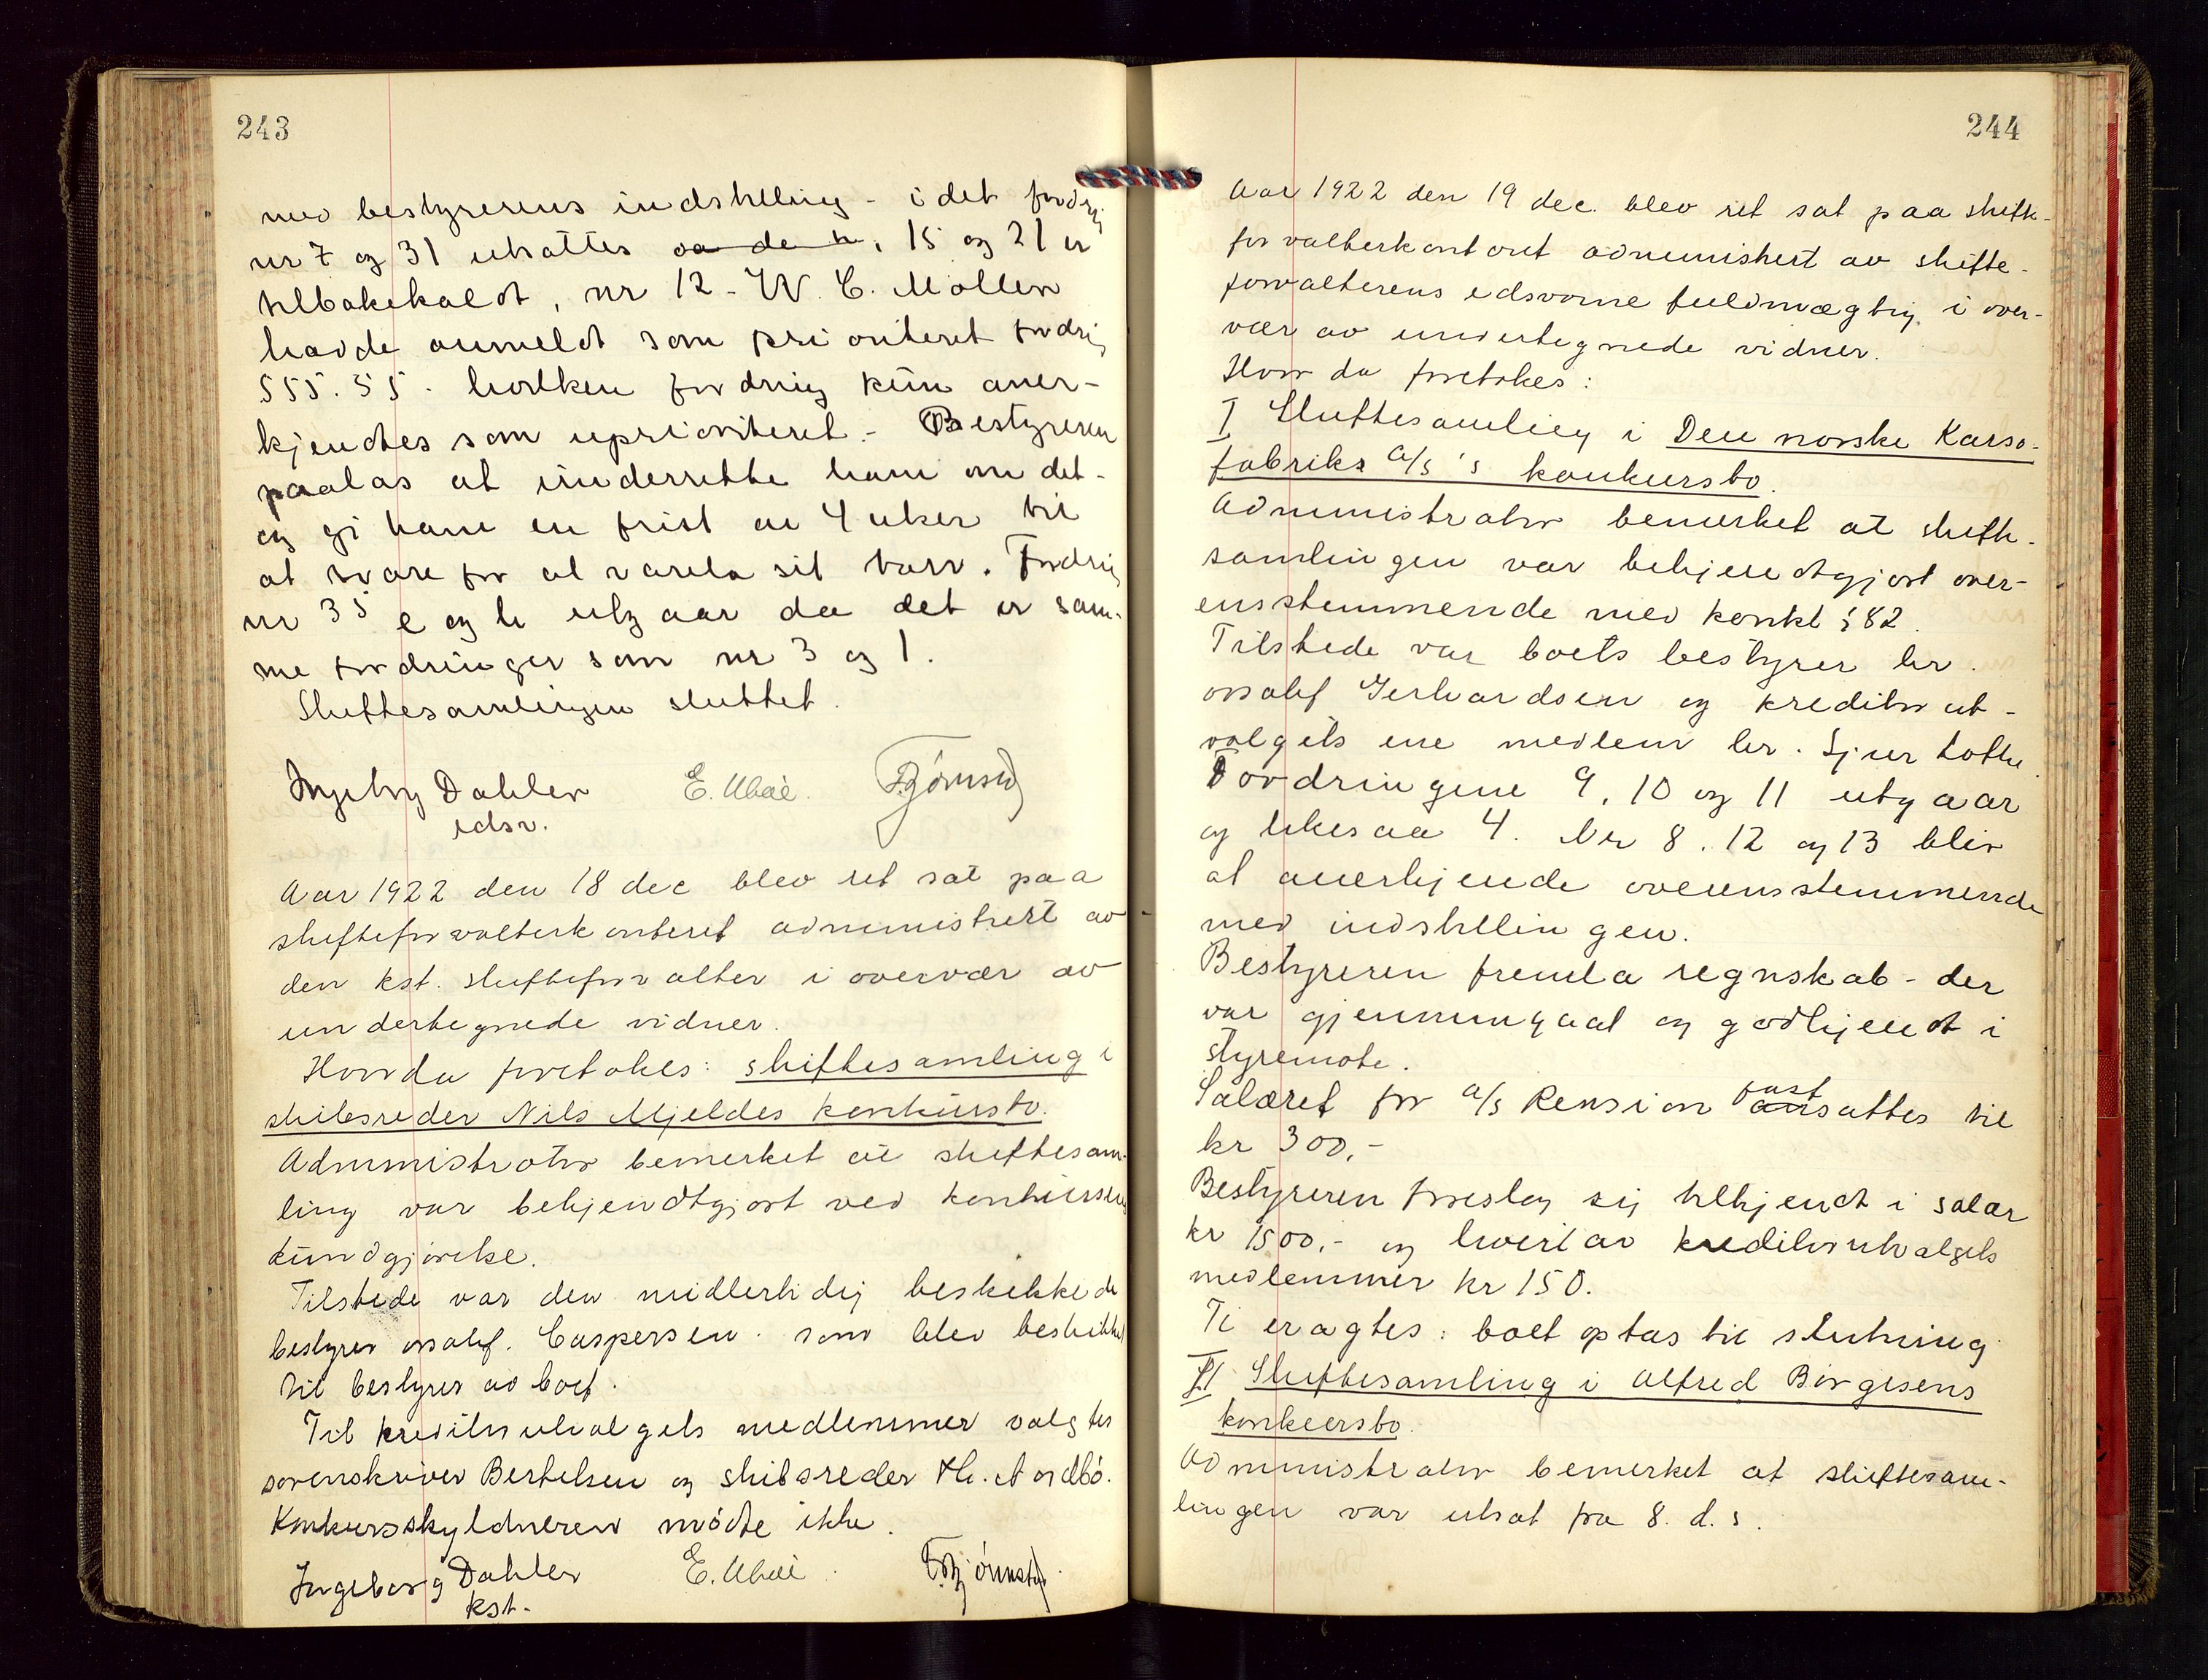 243
med bestyrerens indstilling - idet fordrig
nr 7 og 31 utsattes 15 og 21 er
tilbakekaldt, nr 12 - W. C. Møller
havde anmeldt som prioritert fordrig
555.55 - hvilken fordring kun aner-
kjendtes som uprioritert. - Bestyreren
paalas at underrette ham om det -
og gi ham en frist av 4 uker til
at svare for at vareta sit tarv. Fordrig
nr 35 e og h utgaar da det er sam-
me fordringer som nr 3 og 1.
Skiftesamlingen sluttet.
Ingebrg Dahler E. Ubøe.
edsv.
Aar 1922 den 18 dec blev ret sat paa
skifteforvalterkontoret administrert av
den kst. skifteforvalter i overvær av
undertegnede vidner.
Hvor da foretokes: skiftesamling i
skibsreder Nils Mjeldes konkursbo.
Administrator bemerket at skiftesam-
ling var bekjendtgjort ved konkursens
kundgjørelse.
Tilstede var den midlertidig beskikkede
bestyrer orsakf. Caspersen. som blev beskikket
til bestyrer av boet.
Til kreditorutvalgets medlemmer valgtes
sorenskriver Bertelsen og skibsreder Th. Nordbø.
Konkursskyldneren møtte ikke.
Ingeborg Dahler E. Ubøe
kst.
244
Aar 1922 den 19 dec. blev ret sat paa skifte-
forvalterkontoret administrert av skifte-
forvalterens edsvorne fuldmægtig i over-
vær av undertegnede vidner.
Hvor da foretokes:
I Skiftesamling i Den norske Karso-
fabriks a/s's konkursbo.
Administrator bemerket at skifte-
samlingen var bekjendtgjort over-
ensstemmende med konkl § 82.
Tilstede var boets bestyrer hr.
orsakf Gerhardsen og kreditorut-
valgets ene medlem hr. Sjur Lothe.
Fordringene 9, 10 og 11 utgaar
og likesaa 4. Nr 8. 12 og 13 blir
at anerkjende overensstemmende
med indstillingen.
Bestyreren fremla regnskab - der
var gjennemgaat og godkjendt i
styremøte.
Salæret for a/s Rension fastsattes til
kr 300,-
Bestyreren foreslog sig tilkjendt i salær
kr 1500,- og hvert av kreditorutvalgets
medlemmer kr 150.
Ti eragtes: boet optas til slutning
II Skiftesamling i Alfred Børgesens
konkursbo.
Administrator bemerket at skiftesam-
lingen var utsat fra 8. d.s.